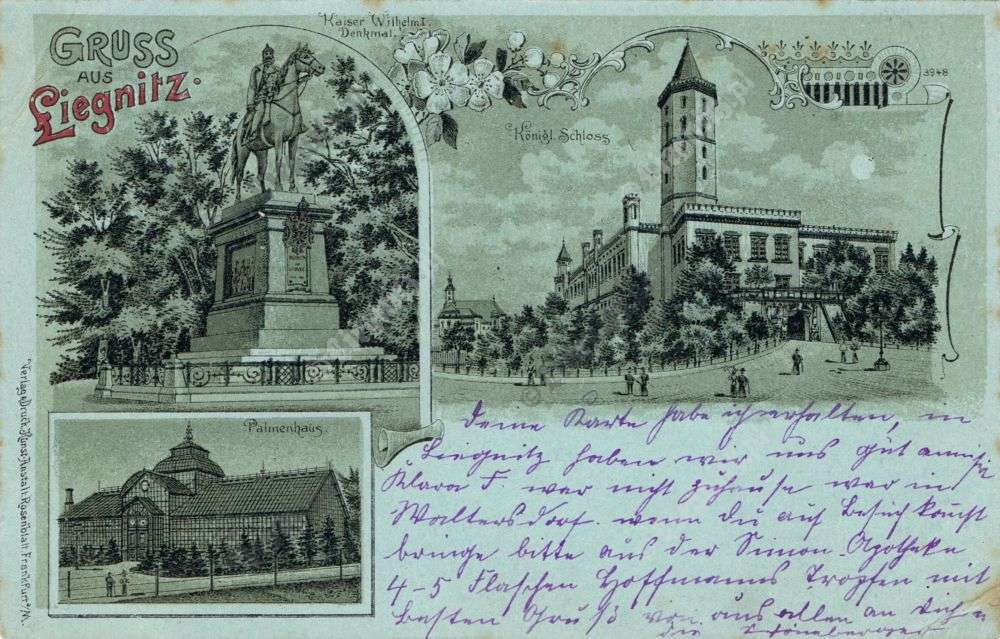 GRUSS
AUS
Liegnitz.
Kaiser Wilhelm I.
Denkmal.
Königl. Schloss
3948
Palmenhaus.
Verlag & Druck Kunst-Anstalt Rosenblatt Frankfurt a/M.
Deine Karte habe ich erhalten, in
Liegnitz haben wir uns gut
Klara F war nicht zuhause war in
Waltersdorf. wenn du auf Besuch kommst
bringe bitte aus der Simon Apotheke
4-5 Flaschen Hoffmanns Tropfen mit
Besten Gruß von uns allen an Dich
die